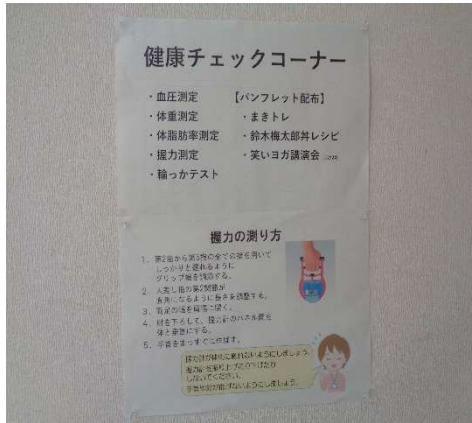 健康チェックコーナー
・血圧測定
・体重測定
・体脂肪率測定
・握力測定
・輪っかテスト
【パンフレット配布】
・まきトレ
・鈴木梅太郎丼レシピ
・笑いヨガ講演会
握力の測り方
1. 第2指から第5指の全ての指を用いて
しっかりと握れるように
グリップ幅を調節する。
2. 人差し指の第2関節が
直角になるように長さを調整する。
3. 両足の幅を肩幅に開く。
4. 肘を下ろして、握力計のパネル面を
体と垂直にする。
5. 手首をまっすぐに伸ばす。
握力計が体に触れないようにしましょう。
握力計を振り上げたり下げたり
しないでください。
手首や肘が曲がらないようにしましょう。